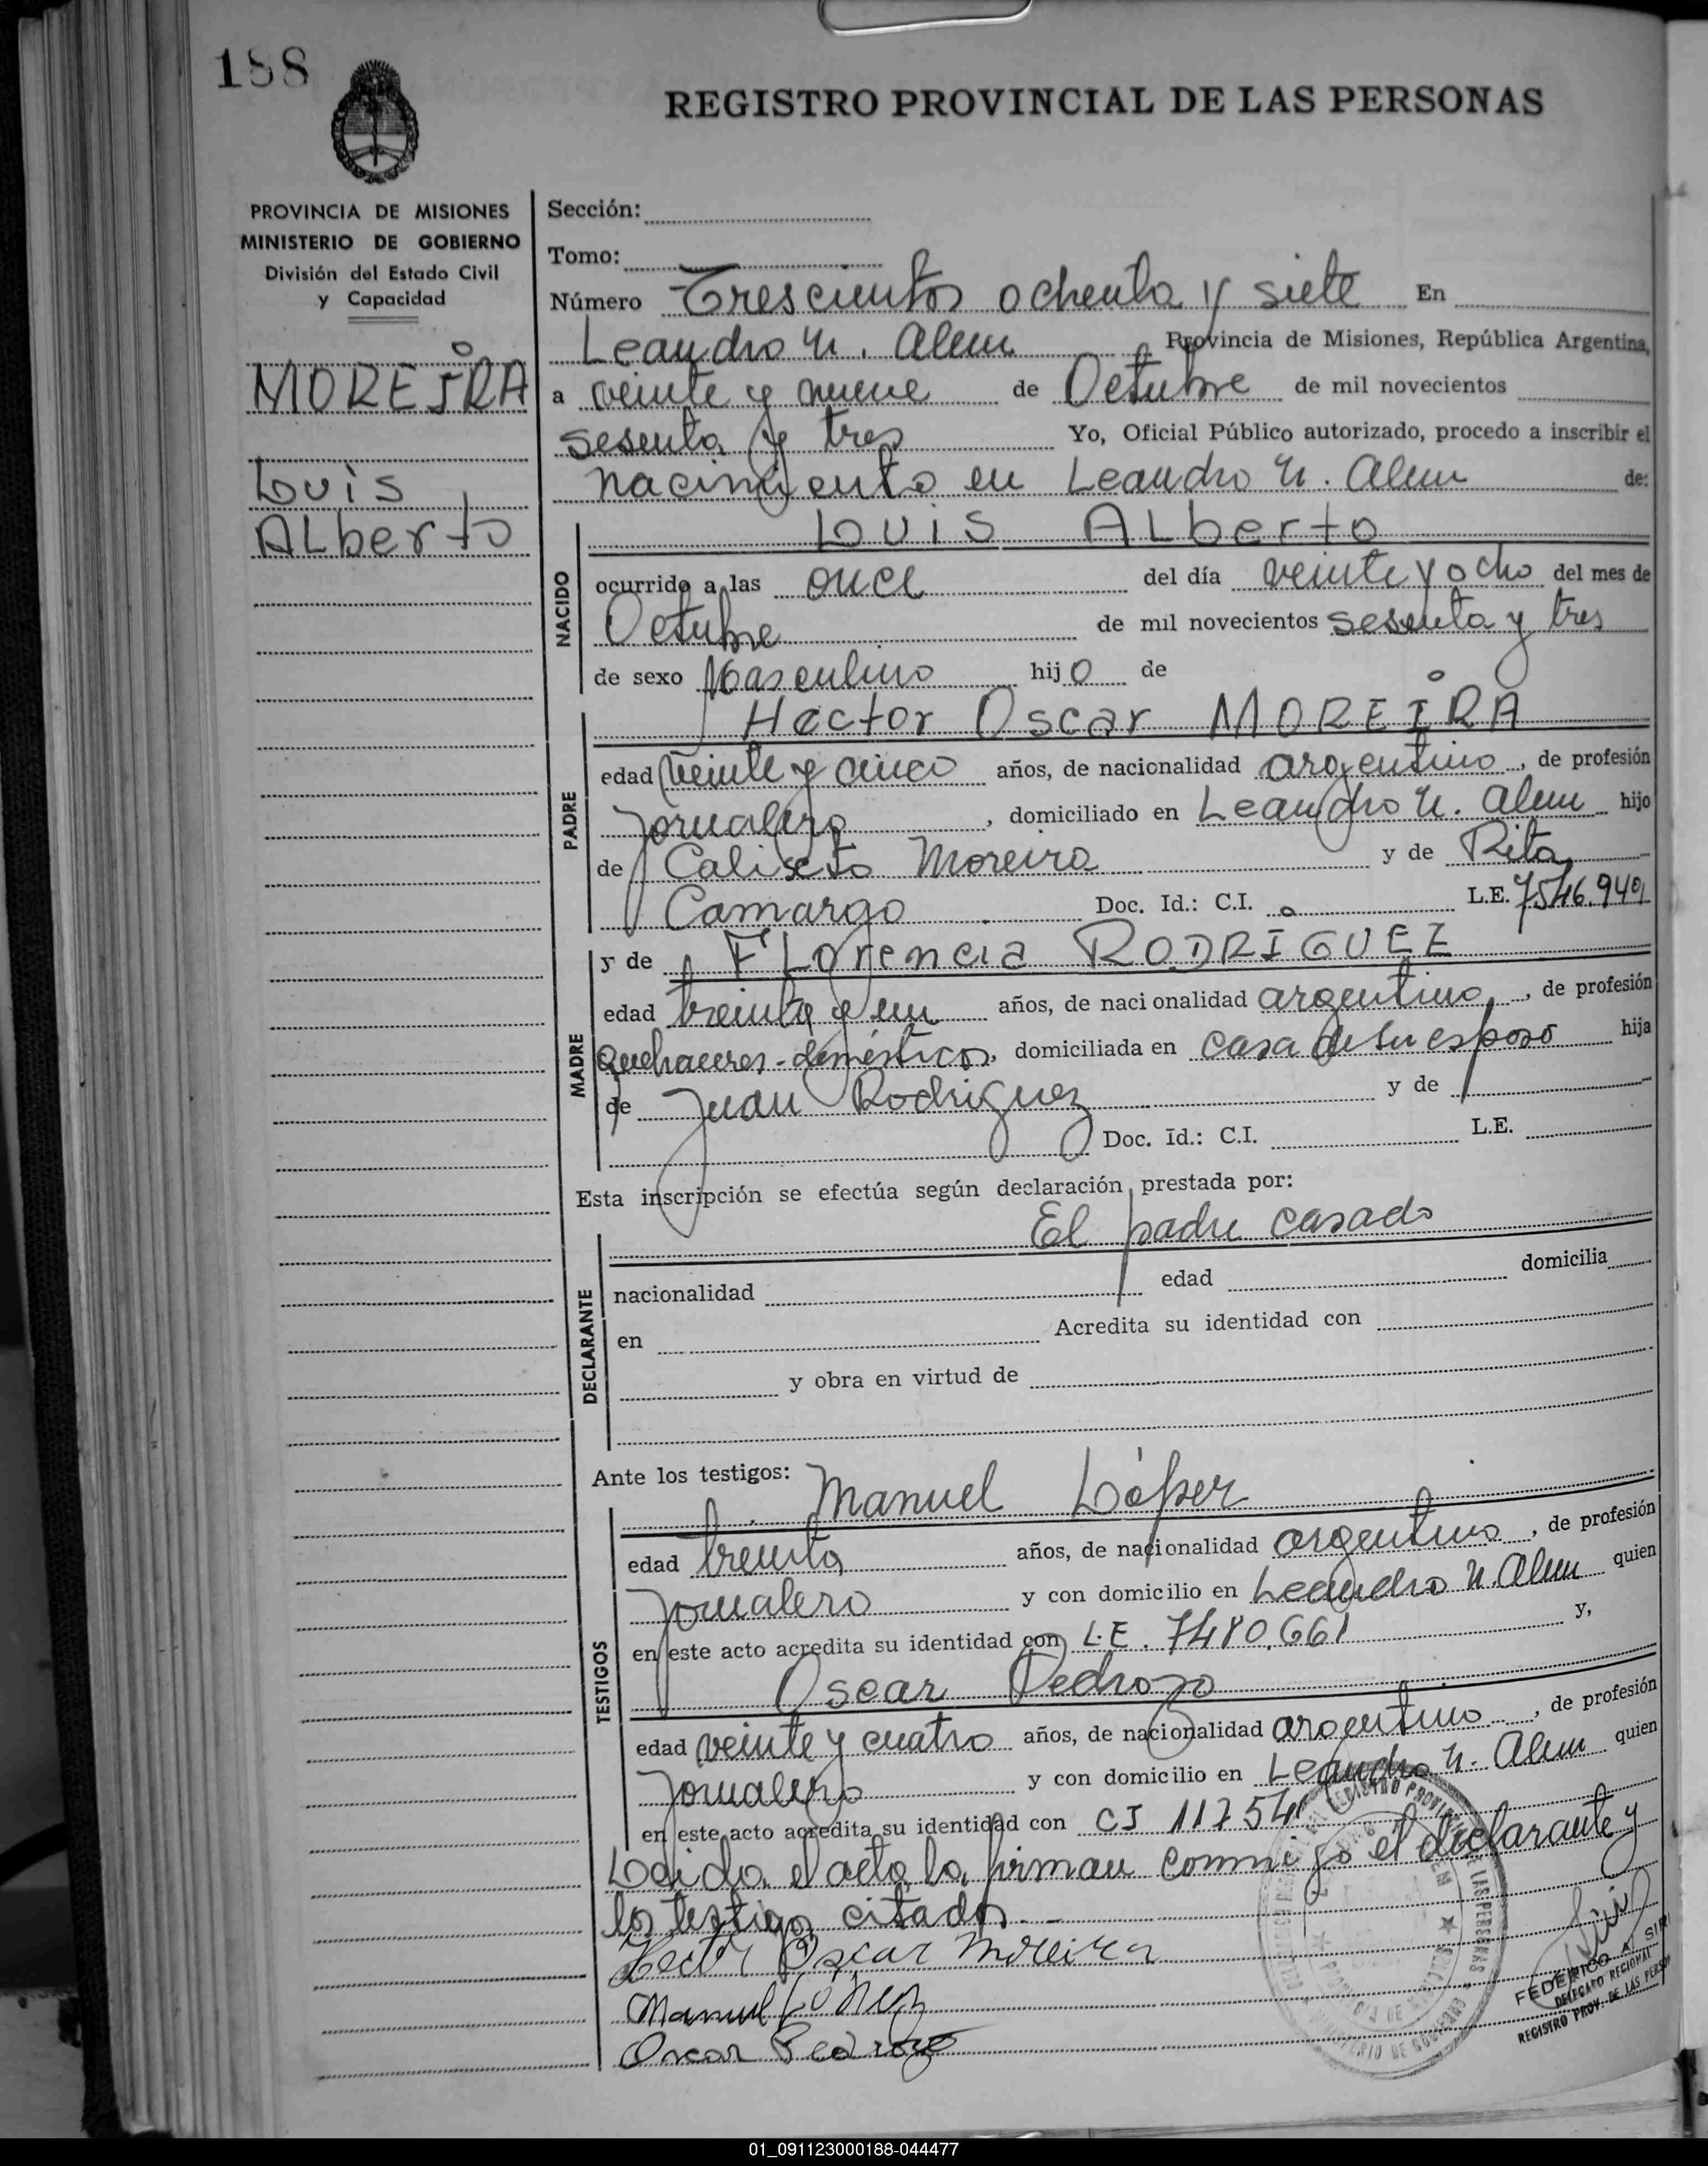 188
REGISTRO PROVINCIAL DE LAS PERSONAS
PROVINCIA DE MISIONES
MINISTERIO DE GOBIERNO
División del Estado Civil
y Capacidad
MOREIRA
Luis
ALberto
Sección:
Tomo:
Número Trescientos ochenta y siete En
Leandro N. Alem Provincia de Misiones, República Argentina,
a veinte y nueve de Octubre de mil novecientos
sesenta y tres Yo, Oficial Público autorizado, procedo a inscribir el
nacimiento en Leandro N. Alem de:
LUIS ALberto
NACIDO
ocurrido a las once del día veinte y ocho del mes de
Octubre de mil novecientos sesenta y tres
de sexo Masculino hijo de
PADRE
Hector Oscar MOREIRA
edad veinte y cinco años, de nacionalidad argentino, de profesión
Jornalero, domiciliado en Leandro N. Alem hijo
de Caliseto Moreira y de Rita
Camargo Doc. Id.: C.I. L.E. 7546.940
MADRE
y de FLorencia RODRIGUEZ
edad treinta y un años, de nacionalidad argentina, de profesión
quehaceres-domésticos, domiciliada en casa de su esposo hija
de Juan Rodriguez y de
Doc. Id.: C.I. L.E.
Esta inscripción se efectúa según declaración prestada por:
El padre casado
DECLARANTE
nacionalidad edad domicilia
en Acredita su identidad con
y obra en virtud de
Ante los testigos: Manuel López
TESTIGOS
edad treinta años, de nacionalidad argentino, de profesión
Jornalero y con domicilio en Leandro N. Alem quien
en este acto acredita su identidad con L.E. 7480.661 y,
Oscar Pedrozo
edad veinte y cuatro años, de nacionalidad argentino, de profesión
Jornalero y con domicilio en Leandro N. Alem quien
en este acto acredita su identidad con CI 11754
Leida el acta la firman conmigo el declarante y
los testigos citados.-
Hector Oscar Moreira
Manuel López
Oscar Pedrozo
FEDERICO A.
DELEGADO REGIONAL
REGISTRO PROV. DE LAS PERSO
01_091123000188-044477